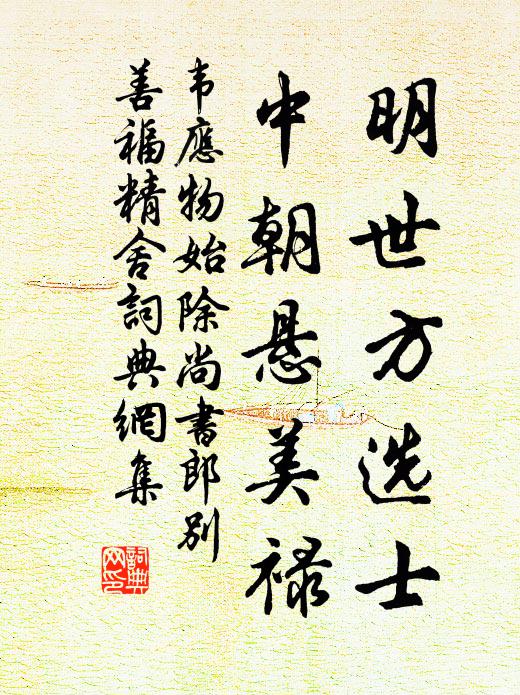 明世方选士
中朝悬美禄
韦應物始除尚書郎别
善福精舍詞典網集
詞典网印